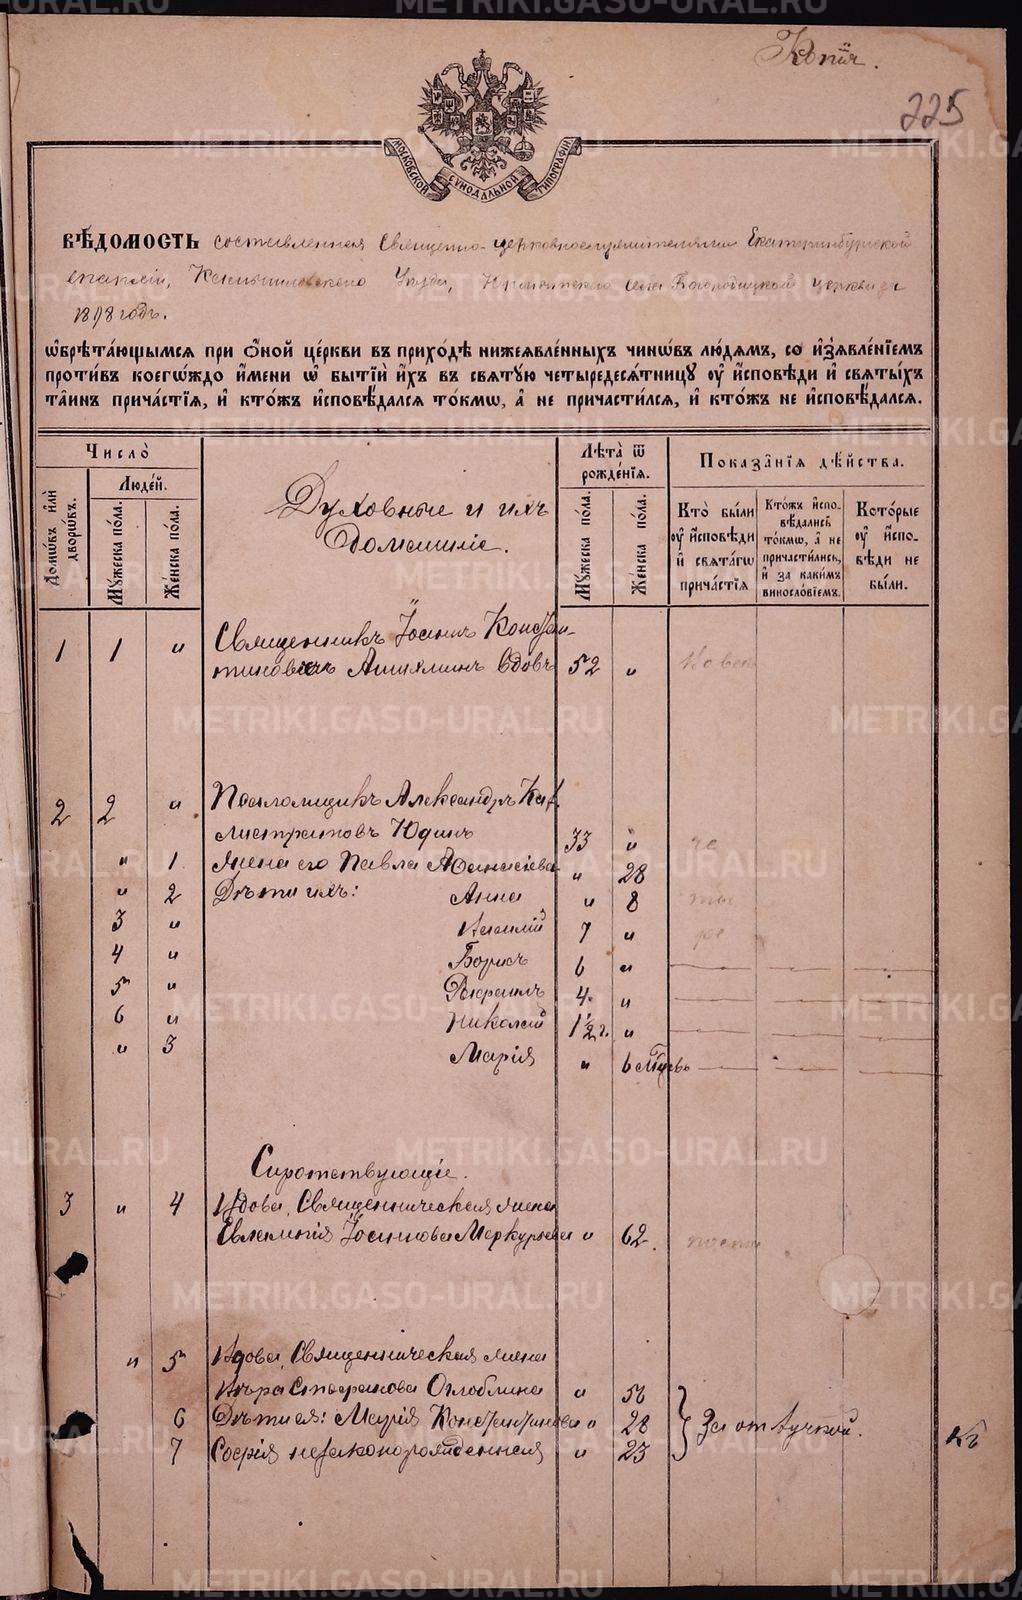 Копія.
225
МОСКОВСКОЙ СУНОДАЛЬНОЙ ТИПОГРАФІИ
ВѢДОМОСТЬ составленная Священно-церковнослужителями Екатеринбургской
епархіи, Камышловскаго Уѣзда, села Богородицкой церкви за
1898 годъ.
Ѡбрѣта́ющымся при Ѻ́ной це́ркви въ прихо́дѣ нижеꙗвле́нныхъ чинѡ́въ лю́дямъ, со и҆з̾ѧвле́нїемъ
проти́въ коегѡ́ждо и҆́мени ѡ҆ бытїѝ и҆́хъ въ свѧту́ю четыредесѧ́тницу ᲂу҆ и҆́сповѣди и҆ свѧты́хъ
та́инъ прича́стїѧ, и҆ кто́жъ и҆сповѣ́дался то́кмѡ, а҆ не причасти́лся, и҆ кто́жъ не и҆сповѣ́дался.
Число̀
Людéй.
Домѡ́въ и҆лѝ дворѡ́въ.
Му́жеска по́ла.
Же́нска по́ла.
Духовные и ихъ
Домашніе.
Лѣ́та ѿ рожде́нїѧ.
Му́жеска по́ла.
Же́нска по́ла.
Показа́нїѧ дѣ́йства.
Кто̀ бы́ли ᲂу҆ и҆́сповѣди и҆ свѧта́гѡ прича́стїѧ
Кто́жъ и҆спо-вѣ́дались то́кмѡ, а҆ не причасти́лись, и҆ за каки́мъ виносло́вїемъ.
Кото́рые ᲂу҆ и҆́спо-вѣди не бы́ли.
1 1 " Священникъ Іоаннъ Констан-
тиновичъ вдовъ 52 "
2 2 " Псаломщикъ Александръ Ка-
листратовъ Юдинъ 33 "
" 1 Жена его Павла Аѳанасіева " 28
" 2 Дѣти ихъ: Анна " 8
3 " Василій 7 "
4 " Борисъ 6 "
5 " 4 "
6 " Николай 1½ г. "
" 3 Марія " 6 мѣсяцевъ
Сиротствующіе.
3 " 4 Вдова, Священническая жена
Евлампія Іоаннова Меркурьева " 62
" 5 Вдова, Священническая жена
Вѣра Стефанова Оглоблина " 56
6 Дѣти ея: Марія Константинова " 28
7 Софія незаконорожденная " 23
За отлучкой.